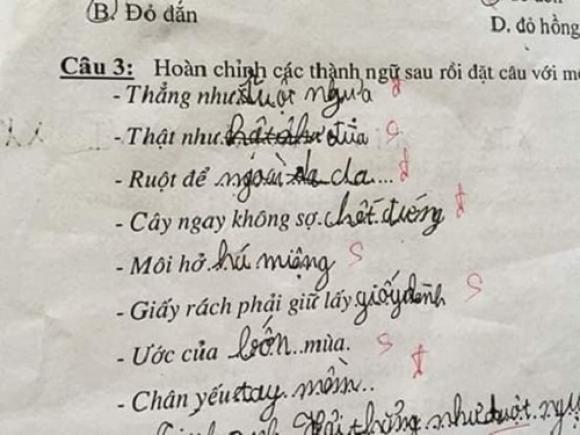 B. Đỏ đắn
D. đỏ hồng
Câu 3: Hoàn chỉnh các thành ngữ sau rồi đặt câu với
- Thẳng như ruột ngựa Đ
- Thật như đũa S
- Ruột để ngoài da ... Đ
- Cây ngay không sợ chết đứng Đ
- Môi hở há miệng S
- Giấy rách phải giữ lấy giấy dành S
- Ước của bốn..mùa. S
- Chân yếu tay mềm.. Đ
như ruột